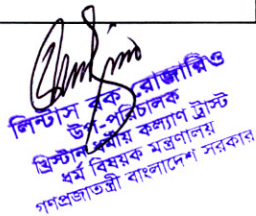 লিন্টাস রক রোজারিও
উপ-পরিচালক
খ্রিস্টান ধর্মীয় কল্যাণ ট্রাস্ট
ধর্ম বিষয়ক মন্ত্রণালয়
গণপ্রজাতন্ত্রী বাংলাদেশ সরকার